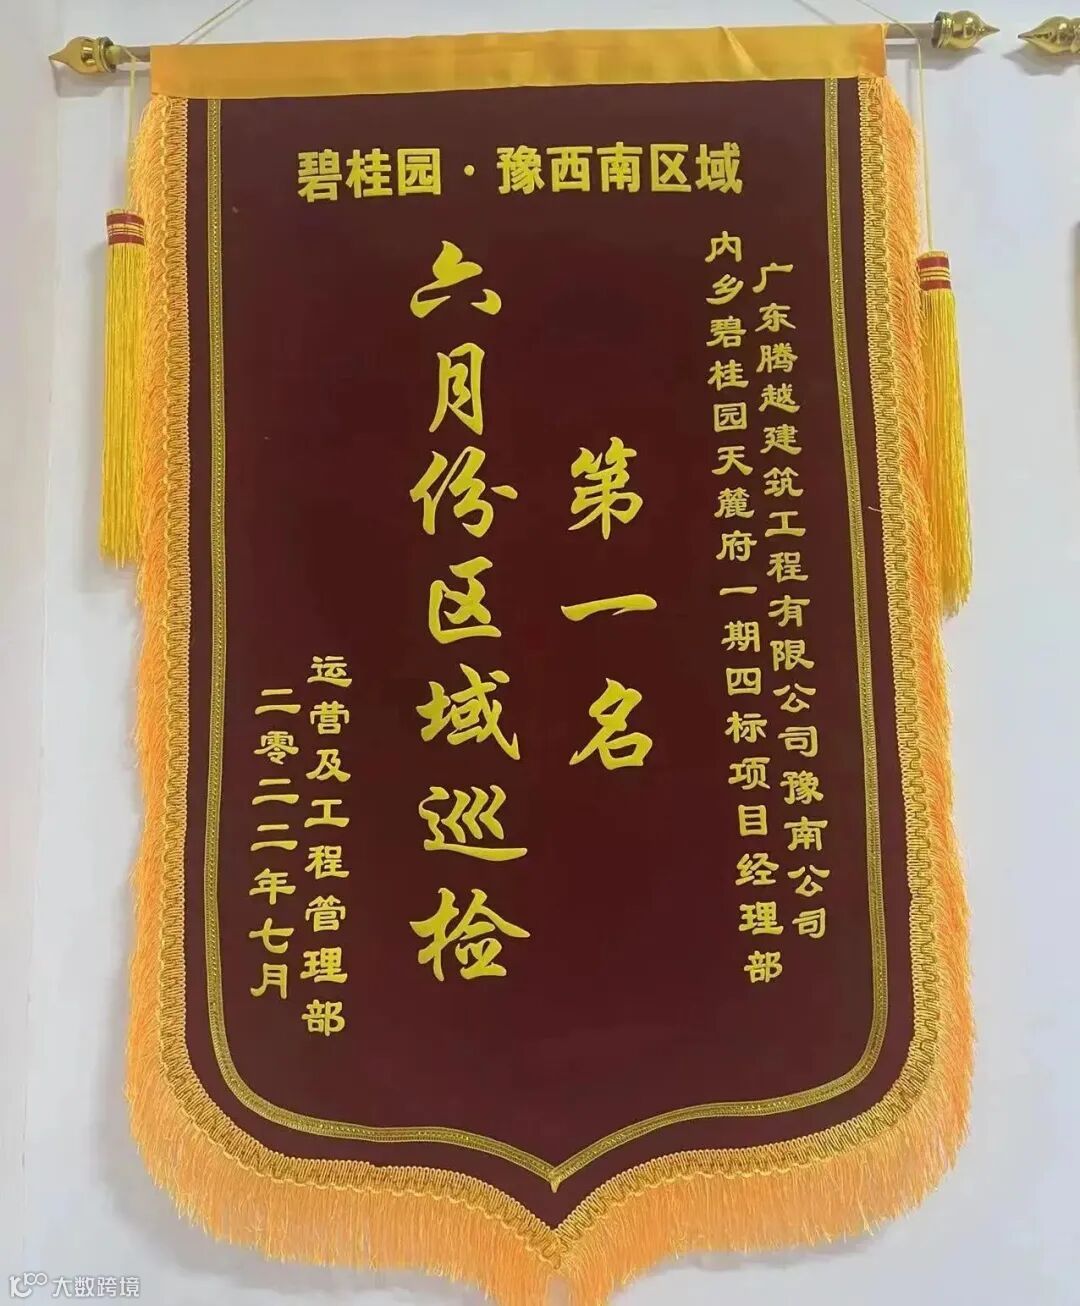 碧桂园·豫西南区域
广东腾越建筑工程有限公司豫南公司
内乡碧桂园天麓府一期四标项目经理部
第一名
六月份区域巡检
运营及工程管理部
二零二二年七月
大数跨境